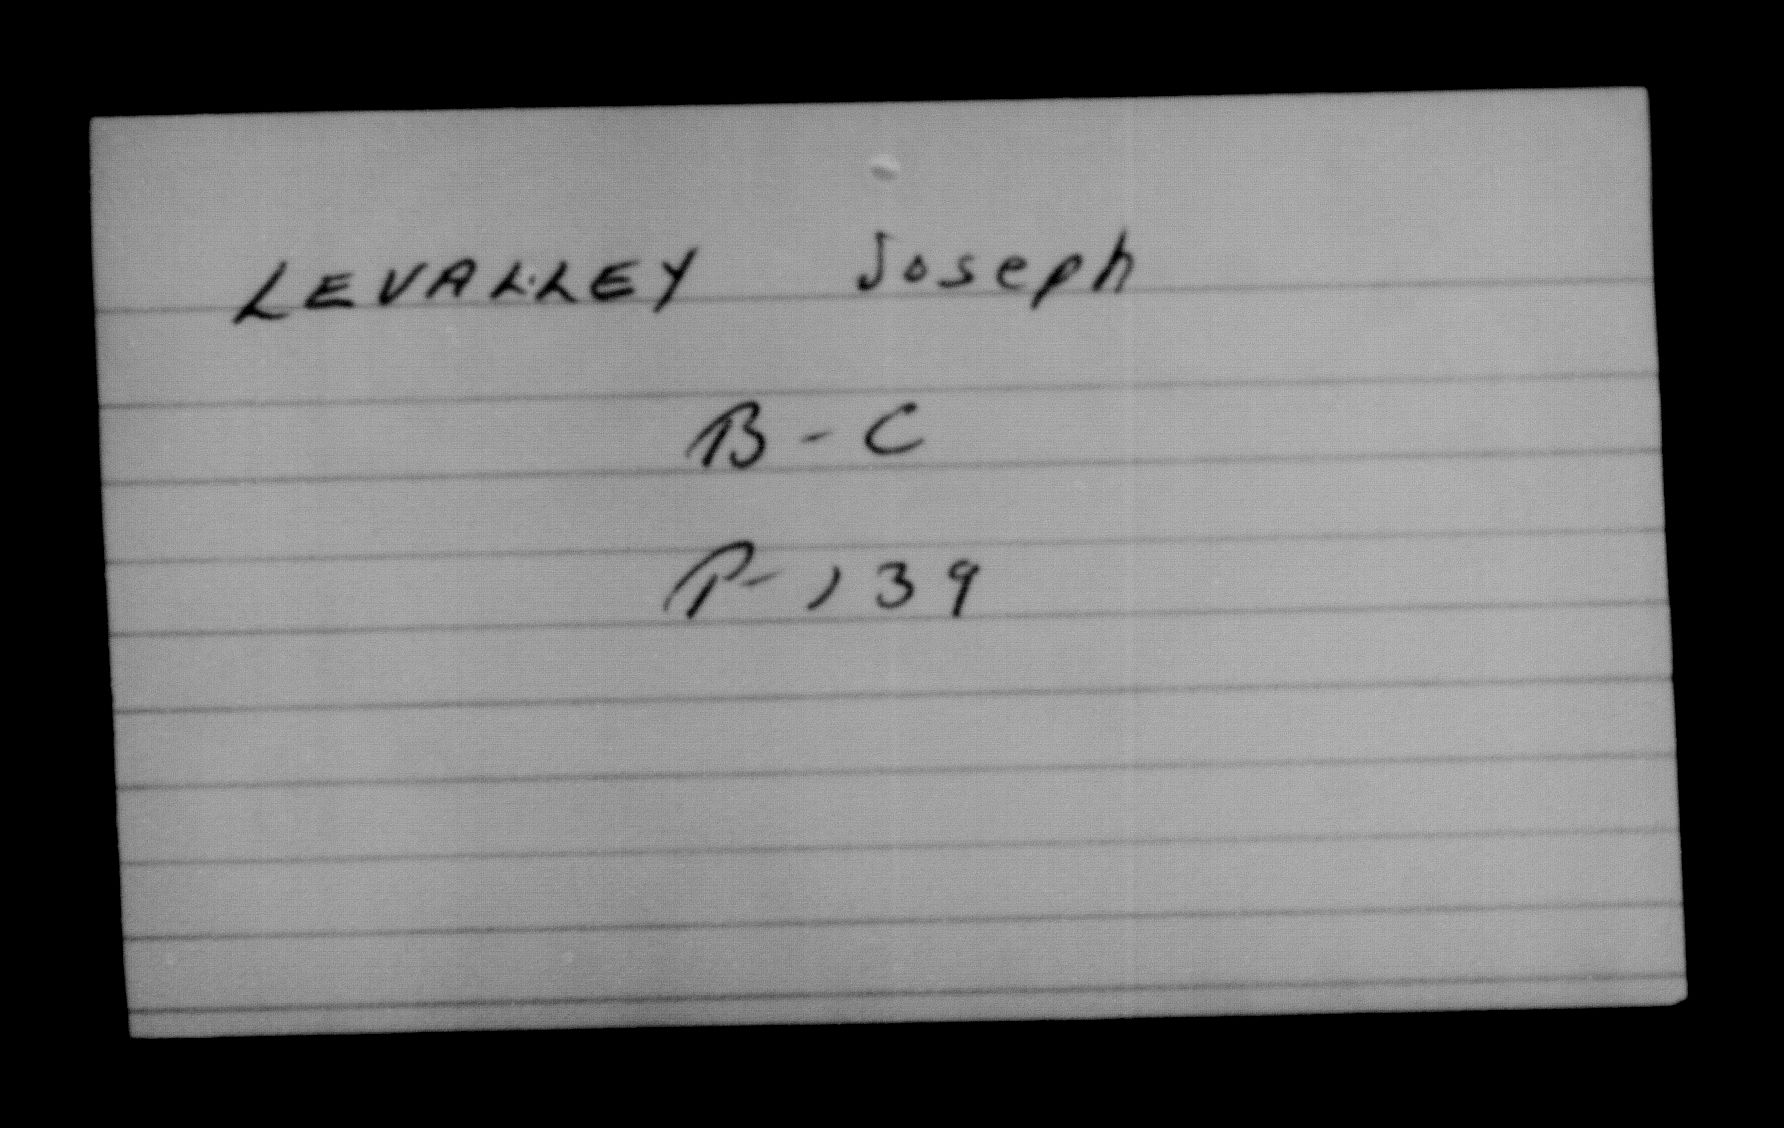 LEVALLEY Joseph
B-C
P-139